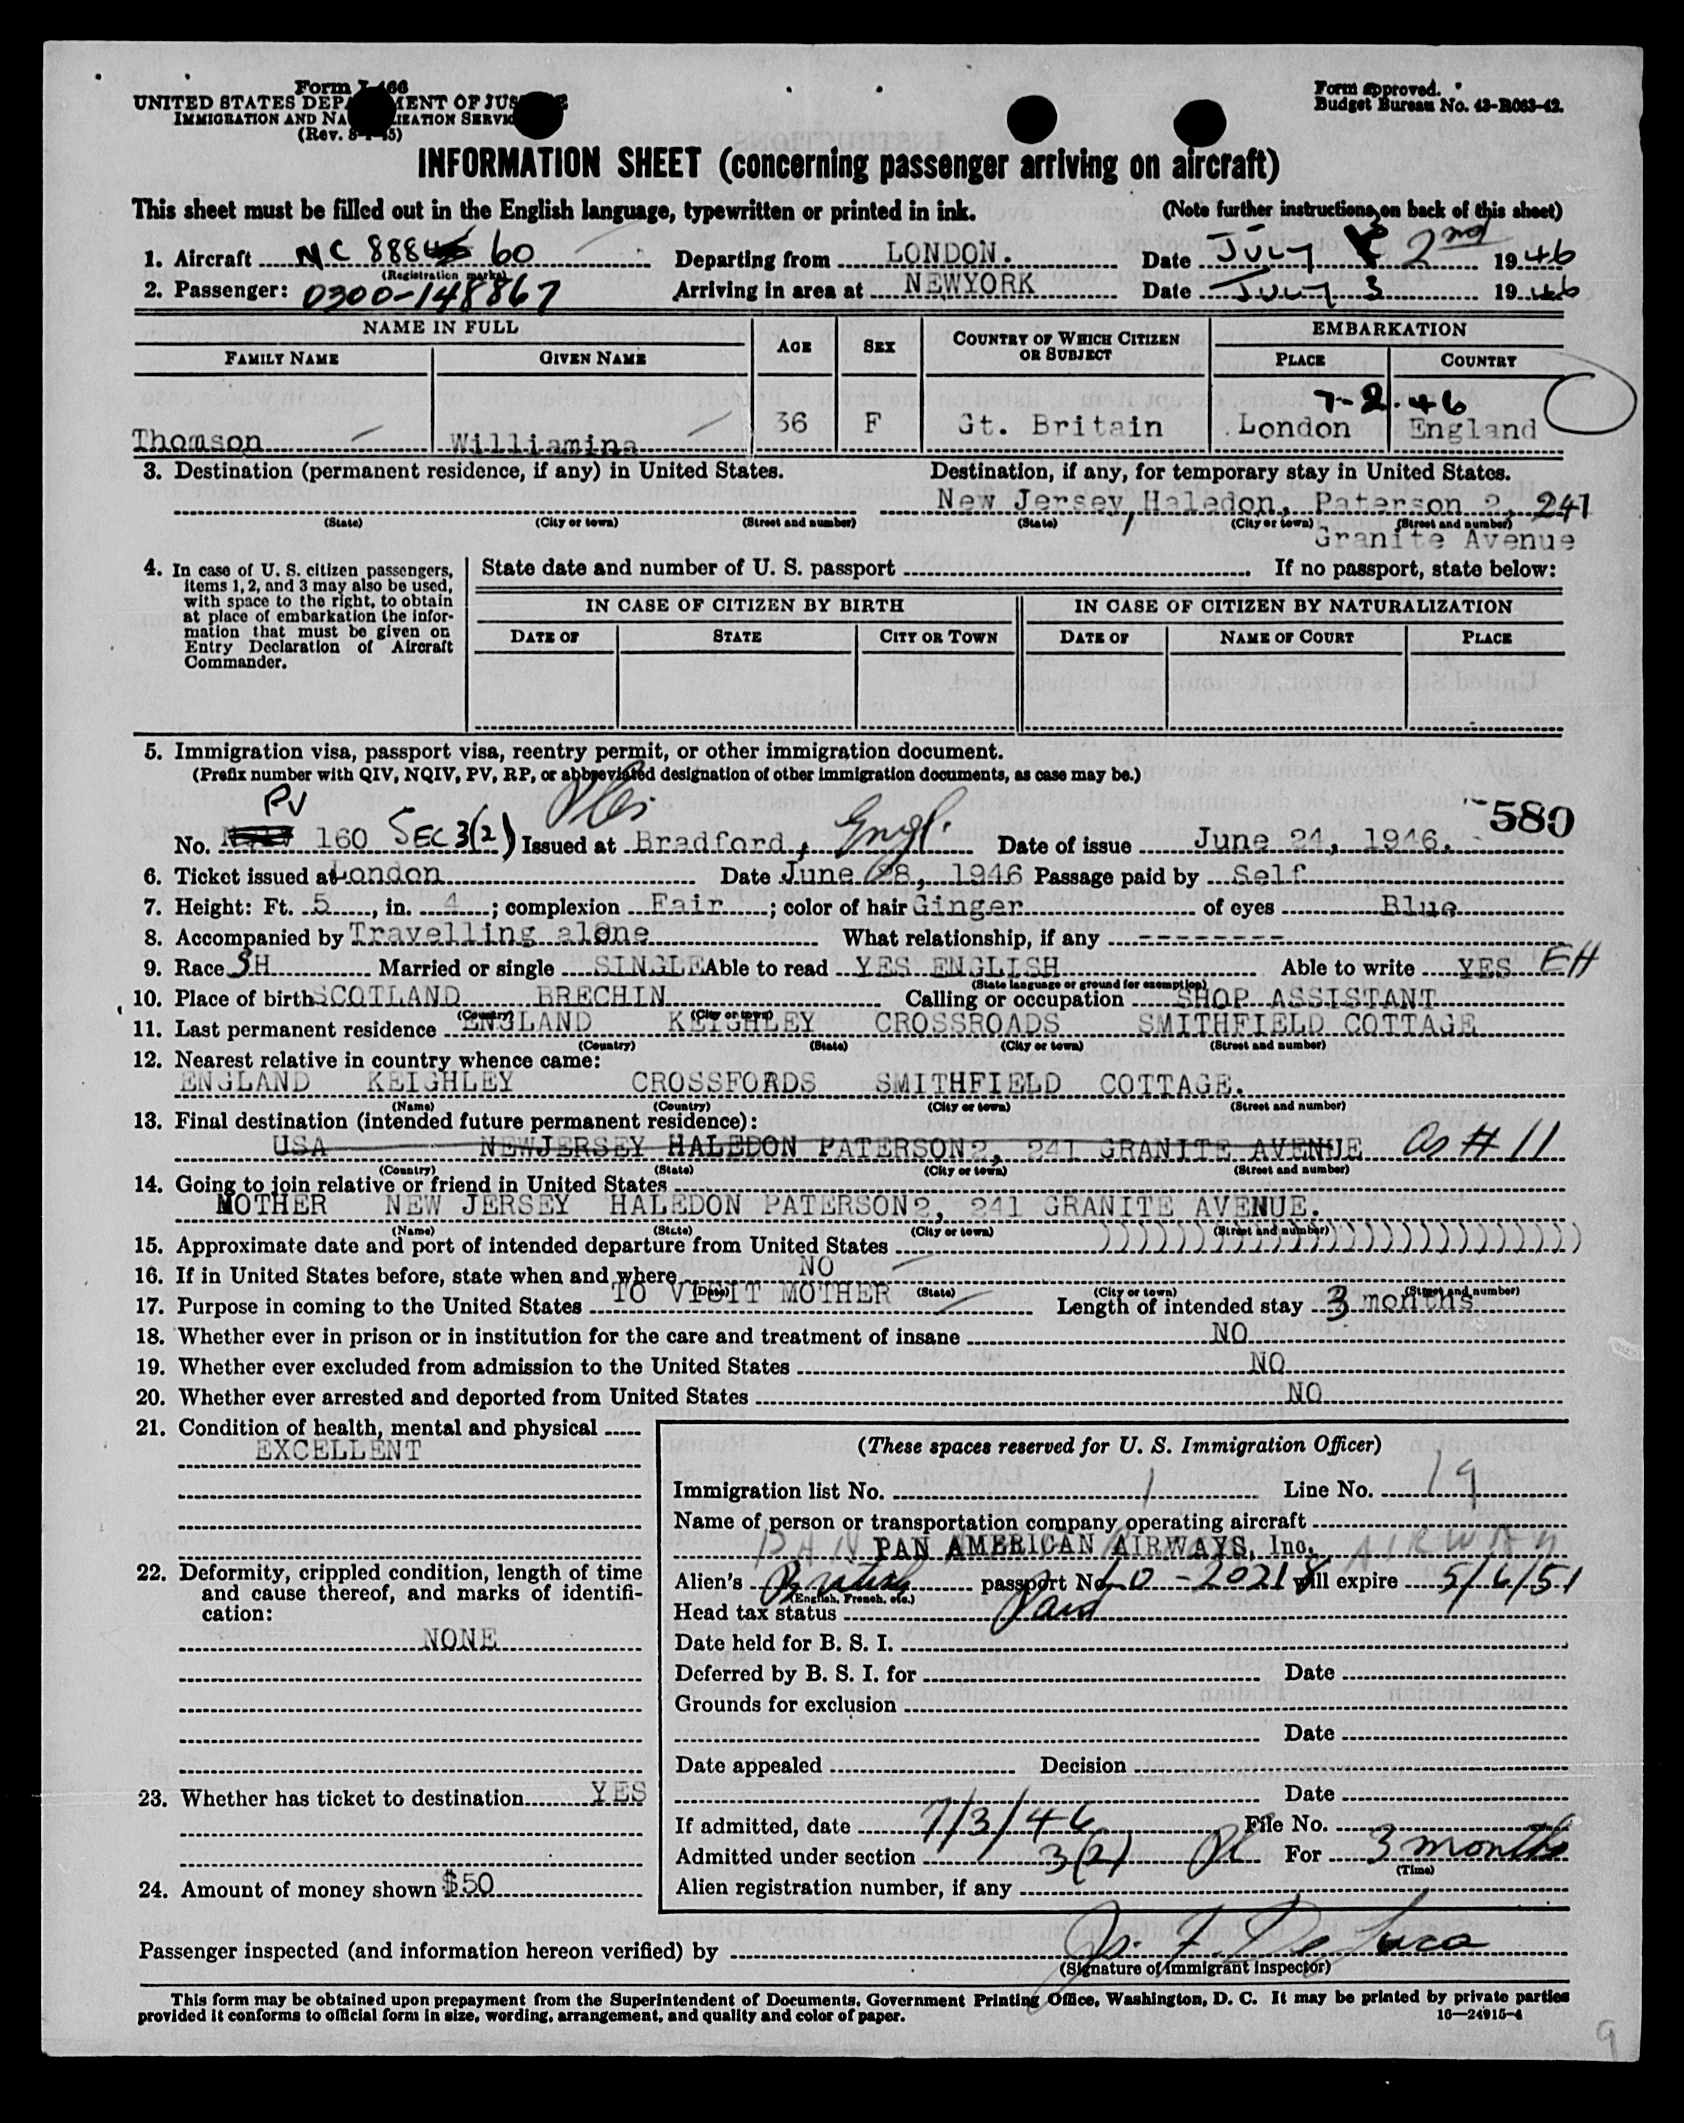 Form I-466
UNITED STATES DEPARTMENT OF JUSTICE
IMMIGRATION AND NATURALIZATION SERVICE
(Rev. 8-1-45)
Form approved.
Budget Bureau No. 43-R063-42.
INFORMATION SHEET (concerning passenger arriving on aircraft)
This sheet must be filled out in the English language, typewritten or printed in ink. (Note further instructions on back of this sheet)
1. Aircraft NC 888 60 Departing from LONDON. Date JULY 2nd 1946
(Registration marks)
2. Passenger: 0300-148867 Arriving in area at NEWYORK Date JULY 3 1946
NAME IN FULL AGE SEX COUNTRY OF WHICH CITIZEN OR SUBJECT EMBARKATION
FAMILY NAME GIVEN NAME PLACE COUNTRY
7-2-46
Thomson Williamina 36 F Gt. Britain London England
3. Destination (permanent residence, if any) in United States. Destination, if any, for temporary stay in United States.
New Jersey, Haledon, Paterson 2, 241
(State) (City or town) (Street and number) (State) (City or town) (Street and number)
Granite Avenue
4. In case of U. S. citizen passengers, items 1, 2, and 3 may also be used, with space to the right, to obtain at place of embarkation the information that must be given on Entry Declaration of Aircraft Commander.
State date and number of U. S. passport If no passport, state below:
IN CASE OF CITIZEN BY BIRTH IN CASE OF CITIZEN BY NATURALIZATION
DATE OF STATE CITY OR TOWN DATE OF NAME OF COURT PLACE
5. Immigration visa, passport visa, reentry permit, or other immigration document.
(Prefix number with QIV, NQIV, PV, RP, or abbreviated designation of other immigration documents, as case may be.)
PV 580
No. 160 SEC 3(2) Issued at Bradford, Engl. Date of issue June 24, 1946.
6. Ticket issued at London Date June 28, 1946 Passage paid by Self
7. Height: Ft. 5, in. 4; complexion Fair; color of hair Ginger of eyes Blue
8. Accompanied by Travelling alone What relationship, if any --------
9. Race SH Married or single SINGLE Able to read YES ENGLISH Able to write YES EH
(State language or ground for exemption)
10. Place of birth SCOTLAND BRECHIN Calling or occupation SHOP ASSISTANT
(Country) (City or town)
11. Last permanent residence ENGLAND KEIGHLEY CROSSROADS SMITHFIELD COTTAGE
(Country) (State) (City or town) (Street and number)
12. Nearest relative in country whence came:
ENGLAND KEIGHLEY CROSSFORDS SMITHFIELD COTTAGE.
(Name) (Country) (City or town) (Street and number)
13. Final destination (intended future permanent residence):
USA NEWJERSEY HALEDON PATERSON2, 241 GRANITE AVENUE as # 11
(Country) (State) (City or town) (Street and number)
14. Going to join relative or friend in United States
MOTHER NEW JERSEY HALEDON PATERSON2, 241 GRANITE AVENUE.
(Name) (State) (City or town) (Street and number)
15. Approximate date and port of intended departure from United States ))))))))))))))))))))))))))
16. If in United States before, state when and where NO
(Date) (State) (City or town) (Street and number)
17. Purpose in coming to the United States TO VISIT MOTHER Length of intended stay 3 months
18. Whether ever in prison or in institution for the care and treatment of insane NO
19. Whether ever excluded from admission to the United States NO
20. Whether ever arrested and deported from United States NO
21. Condition of health, mental and physical
EXCELLENT
22. Deformity, crippled condition, length of time and cause thereof, and marks of identification:
NONE
23. Whether has ticket to destination YES
24. Amount of money shown $50
(These spaces reserved for U. S. Immigration Officer)
Immigration list No. 1 Line No. 19
Name of person or transportation company operating aircraft
PAN AMERICAN AIRWAYS, Inc.
Alien's British passport No. LO-20218 will expire 5/6/51
(English, French, etc.)
Head tax status Paid
Date held for B. S. I.
Deferred by B. S. I. for Date
Grounds for exclusion
Date
Date appealed Decision
Date
If admitted, date 7/3/46 File No.
Admitted under section 3(2) For 3 months
(Time)
Alien registration number, if any
Passenger inspected (and information hereon verified) by J. F. De Luca
(Signature of immigrant inspector)
This form may be obtained upon prepayment from the Superintendent of Documents, Government Printing Office, Washington, D. C. It may be printed by private parties
provided it conforms to official form in size, wording, arrangement, and quality and color of paper. 16—24915-4
9